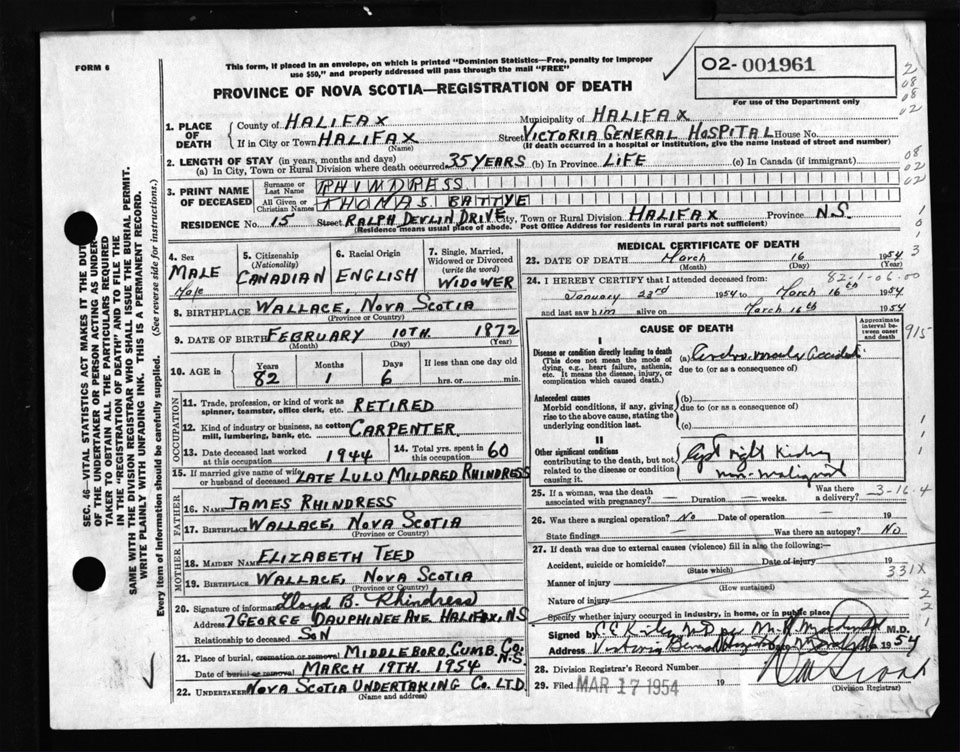 FORM 6
This form, if placed in an envelope, on which is printed "Dominion Statistics—Free, penalty for improper
use $50," and properly addressed will pass through the mail "FREE"
O2-001961
For use of the Department only
PROVINCE OF NOVA SCOTIA—REGISTRATION OF DEATH
2
08
08
02
08
02
02
1. PLACE OF DEATH
County of HALIFAX Municipality of HALIFAX
If in City or Town HALIFAX (Name) Street VICTORIA GENERAL HOSPITAL House No.
(If death occurred in a hospital or institution, give the name instead of street and number)
2. LENGTH OF STAY (in years, months and days)
(a) In City, Town or Rural Division where death occurred 35 YEARS (b) In Province LIFE (c) In Canada (if immigrant)
3. PRINT NAME OF DECEASED
Surname or Last Name RHINDRESS
All Given or Christian Names THOMAS BATTYE
RESIDENCE No. 15 Street RALPH DEVLIN DRIVE City, Town or Rural Division HALIFAX Province N.S.
(Residence means usual place of abode. Post Office Address for residents in rural parts not sufficient)
SEC. 46—VITAL STATISTICS ACT MAKES IT THE DUTY
OF THE UNDERTAKER OR PERSON ACTING AS UNDER-
TAKER TO OBTAIN ALL THE PARTICULARS REQUIRED
IN THE "REGISTRATION OF DEATH" AND TO FILE THE
SAME WITH THE DIVISION REGISTRAR WHO SHALL ISSUE THE BURIAL PERMIT.
WRITE PLAINLY WITH UNFADING INK. THIS IS A PERMANENT RECORD.
Every item of information should be carefully supplied. (See reverse side for instructions.)
4. Sex MALE
Male
5. Citizenship (Nationality) CANADIAN
6. Racial Origin ENGLISH
7. Single, Married, Widowed or Divorced (write the word) WIDOWER
8. BIRTHPLACE WALLACE, NOVA SCOTIA
(Province or Country)
9. DATE OF BIRTH FEBRUARY 10TH. 1872
(Month) (Day) (Year)
10. AGE in Years 82 Months 1 Days 6 If less than one day old hrs. or min.
OCCUPATION
11. Trade, profession, or kind of work as spinner, teamster, office clerk, etc. RETIRED
12. Kind of industry or business, as cotton mill, lumbering, bank, etc. CARPENTER
13. Date deceased last worked at this occupation 1944
14. Total yrs. spent in this occupation 60
15. If married give name of wife or husband of deceased LATE LULU MILDRED RHINDRESS
FATHER
16. NAME JAMES RHINDRESS
17. BIRTHPLACE WALLACE, NOVA SCOTIA
(Province or Country)
MOTHER
18. MAIDEN NAME ELIZABETH TEED
19. BIRTHPLACE WALLACE, NOVA SCOTIA
(Province or Country)
20. Signature of informant Lloyd B. Rhindress
Address 7 GEORGE DAUPHINEE AVE. HALIFAX, N.S
Relationship to deceased SON
21. Place of burial, cremation or removal MIDDLEBORO, CUMB. CO. N.S.
Date of burial or removal MARCH 19TH. 1954
22. UNDERTAKER NOVA SCOTIA UNDERTAKING CO. LTD.
(Name and address)
MEDICAL CERTIFICATE OF DEATH
23. DATE OF DEATH March 16 1954
(Month) (Day) (Year)
24. I HEREBY CERTIFY that I attended deceased from: 82-1-06-00
January 23rd 1954 to March 16th 1954
and last saw him alive on March 16th 1954
CAUSE OF DEATH
Approximate interval between onset and death
915
I
Disease or condition directly leading to death
(This does not mean the mode of dying, e.g., heart failure, asthenia, etc. It means the disease, injury, or complication which caused death.)
(a)
due to (or as a consequence of)
Antecedent causes
Morbid conditions, if any, giving rise to the above cause, stating the underlying condition last.
(b)
due to (or as a consequence of)
(c)
II
Other significant conditions
contributing to the death, but not related to the disease or condition causing it.
Cyst right Kidney
non-malignant
25. If a woman, was the death associated with pregnancy? — Duration — weeks. Was there a delivery? 3-16-4
26. Was there a surgical operation? No Date of operation — 19
State findings — Was there an autopsy? No
27. If death was due to external causes (violence) fill in also the following:—
Accident, suicide or homicide? Date of injury 19
(State which) 331X
Manner of injury
(How sustained)
Nature of injury
Specify whether injury occurred in industry, in home, or in public place
Signed by M.D.
Address Victoria General Hospital 1954
28. Division Registrar's Record Number
29. Filed MAR 17 1954 19
(Division Registrar)